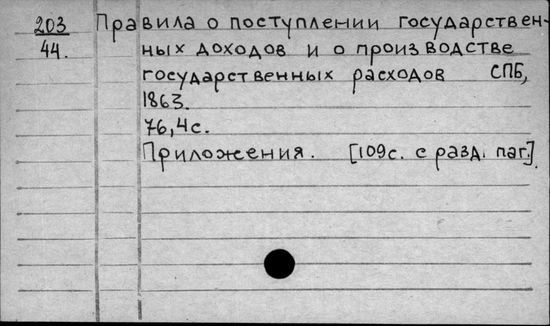 203 Правила о поступлении государствен-
44. ных доходов и о производстве
государственных расходов СПБ,
1863.
76,4с.
Приложения. [109с. с разд. паг.].